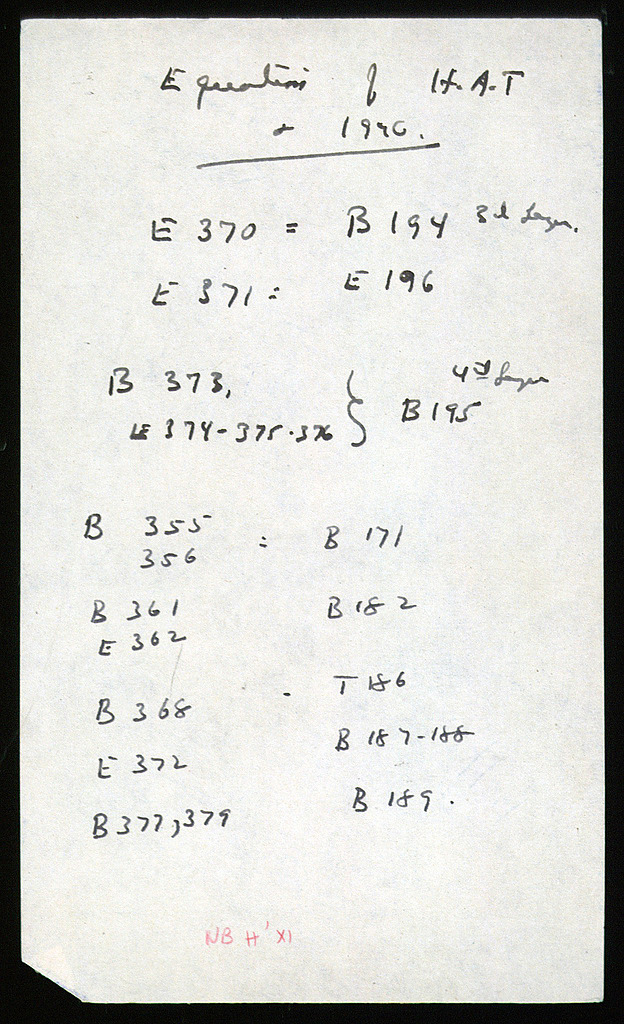 Equation of H.A.T
+ 1946.
E 370 = B 194 3d Layer.
E 371 = E 196
B 373, 4th Layer
E 374-375-376 } B 195
B 355
356 = B 171
B 361 B 182
E 362
B 368 - T 186
E 372 B 187-188
B 377, 379 B 189.
NB H' XI